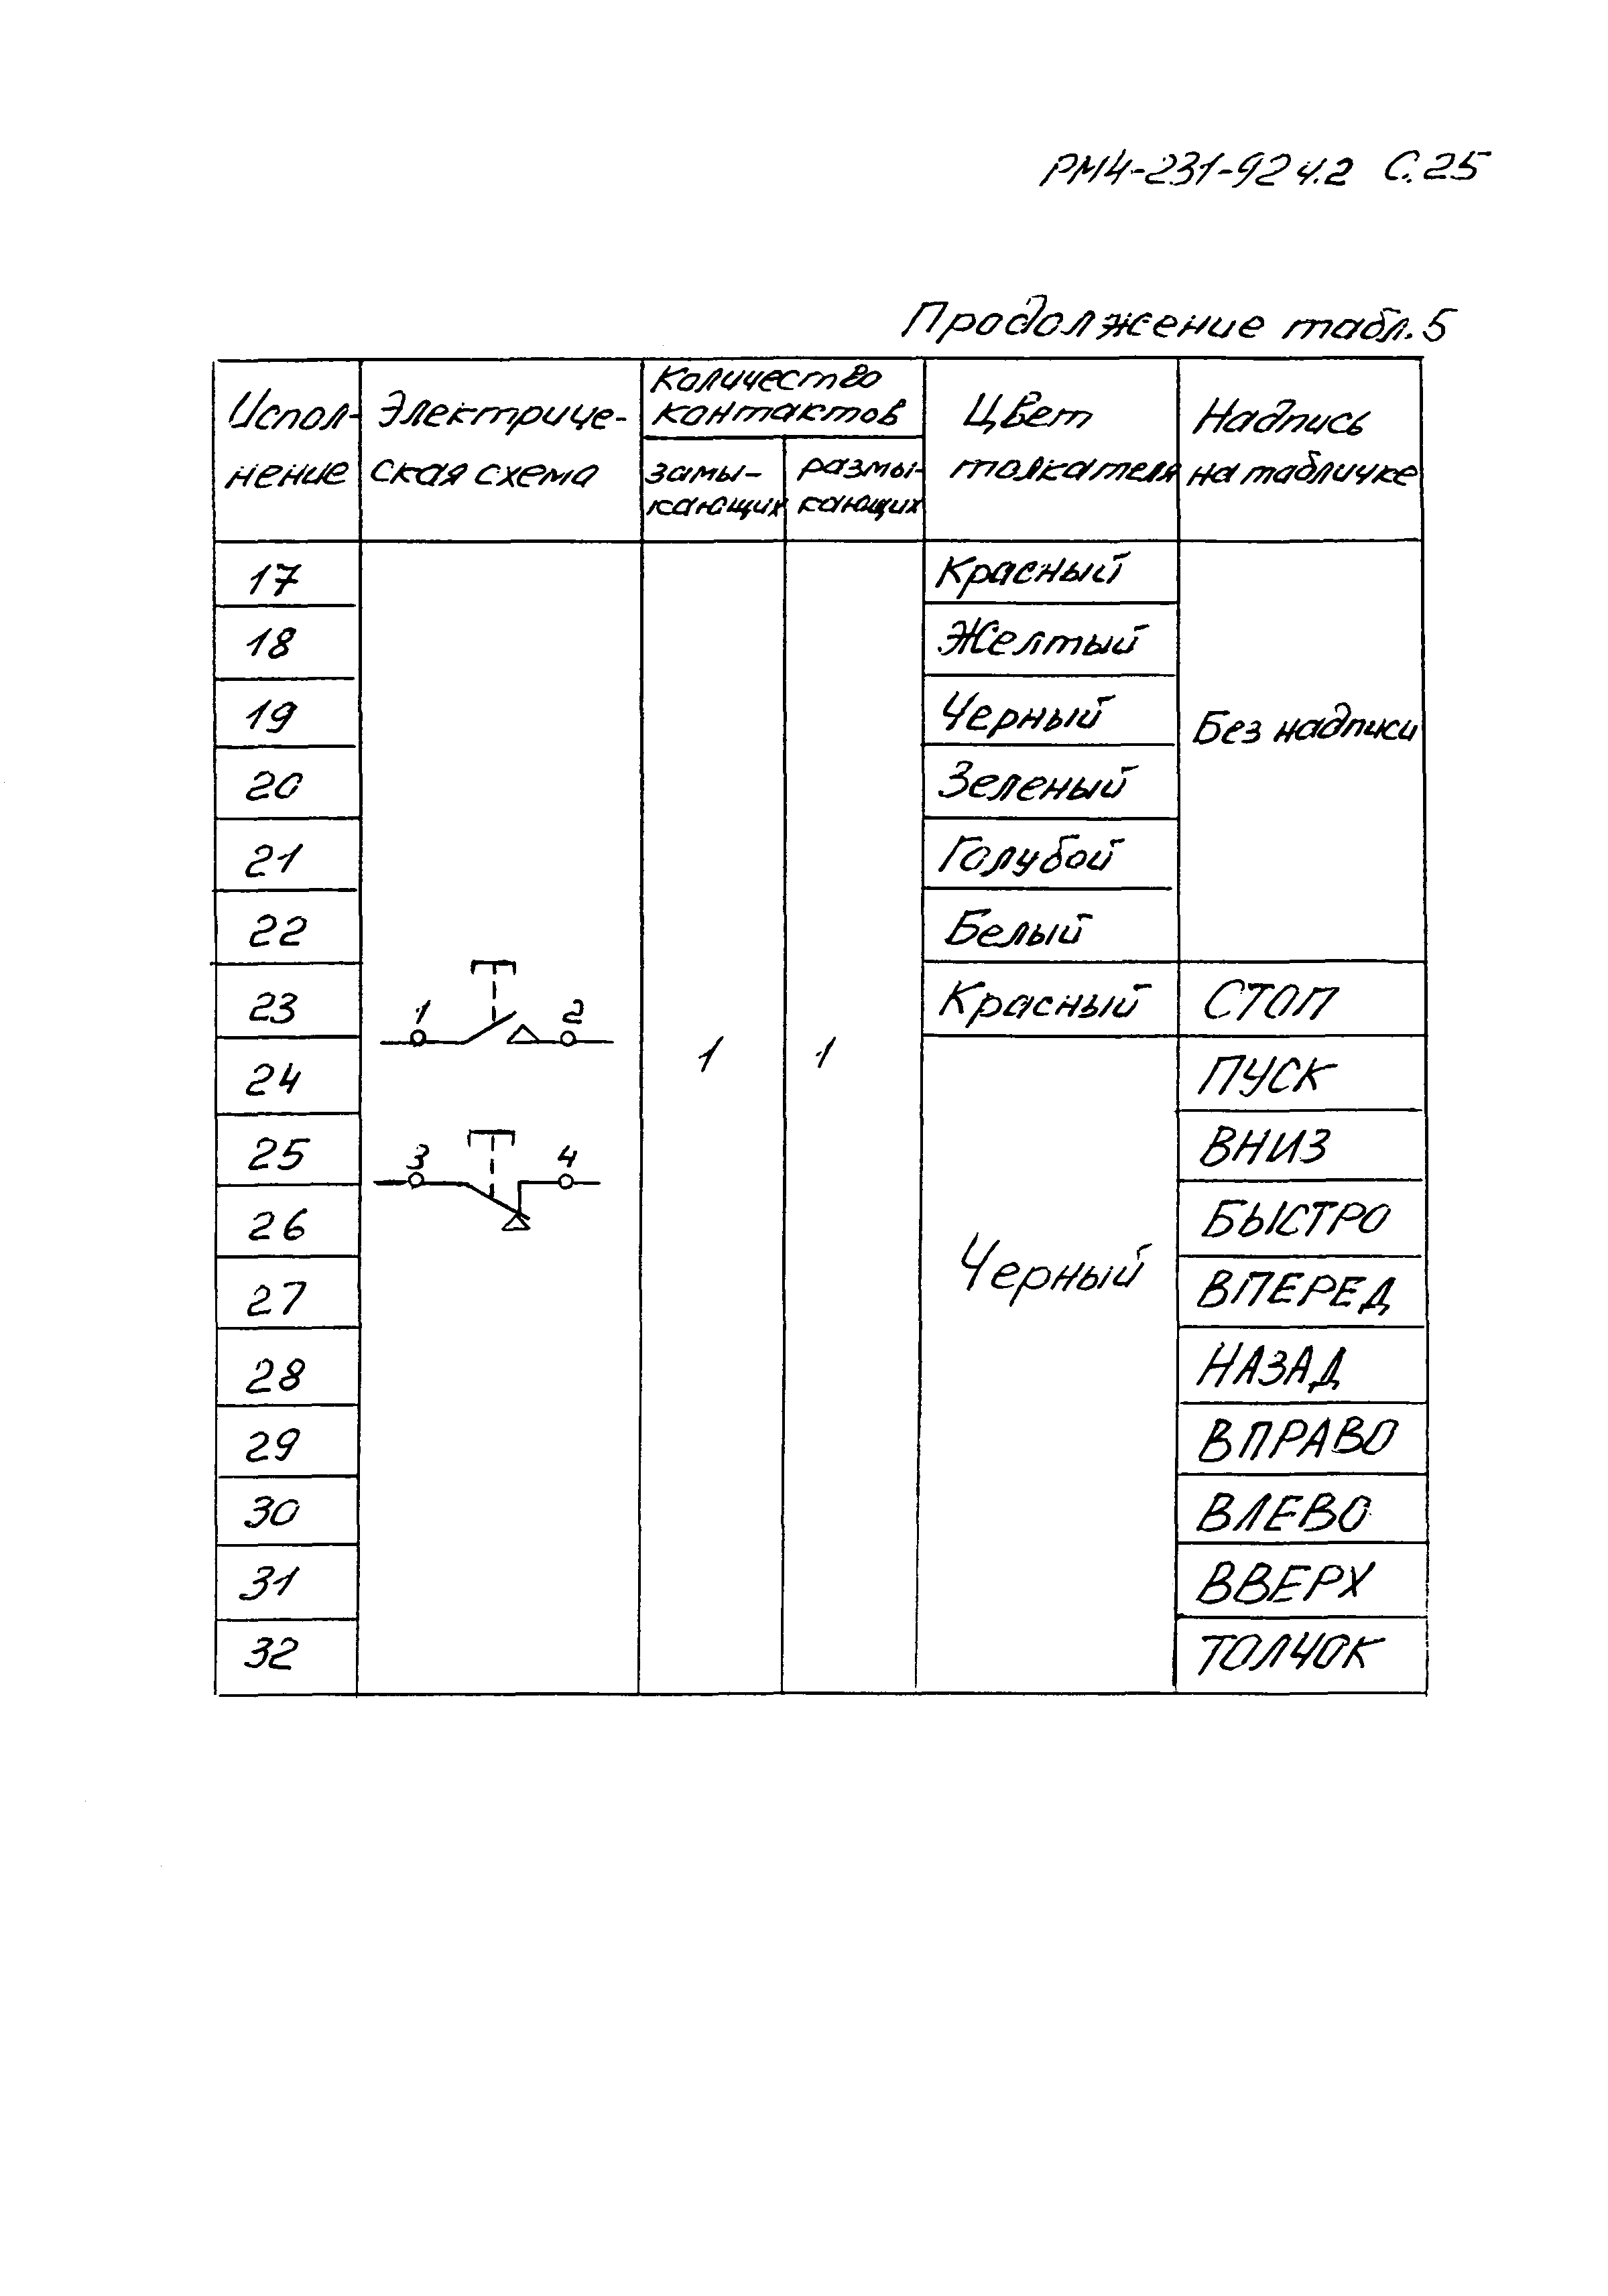 РМ4-231-92 ч.2 С.25
Продолжение табл.5
Испол-
нение
Электриче-
ская схема
Количество
контактов
замы-
кающих
размы-
кающих
Цвет
толкателя
Надпись
на табличке
17
Красный
18
Желтый
19
Черный
Без надписи
20
Зеленый
21
Голубой
22
Белый
23
1 2
Красный
СТОП
24
1
1
ПУСК
25
3 4
ВНИЗ
26
БЫСТРО
Черный
27
ВПЕРЕД
28
НАЗАД
29
ВПРАВО
30
ВЛЕВО
31
ВВЕРХ
32
ТОЛЧОК